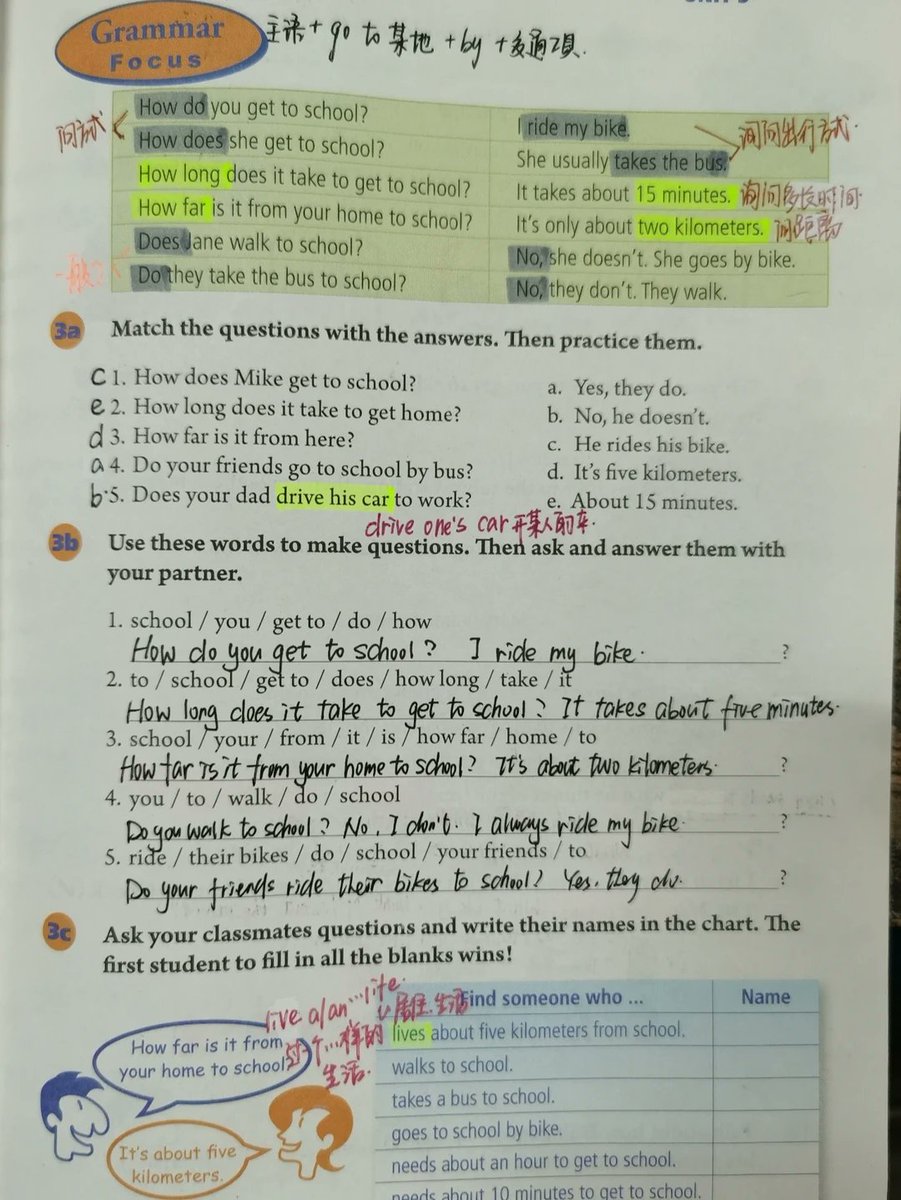 Grammar
Focus
主语+go to 某地 +by +交通工具.
How do you get to school?
I ride my bike.
问方式
询问出行方式.
How does she get to school?
She usually takes the bus.
How long does it take to get to school?
It takes about 15 minutes. 询问多长时间
How far is it from your home to school?
It's only about two kilometers. 问距离
Does Jane walk to school?
No, she doesn't. She goes by bike.
一般
Do they take the bus to school?
No, they don't. They walk.
3a Match the questions with the answers. Then practice them.
c 1. How does Mike get to school?
a. Yes, they do.
e 2. How long does it take to get home?
b. No, he doesn't.
d 3. How far is it from here?
c. He rides his bike.
a 4. Do your friends go to school by bus?
d. It's five kilometers.
b 5. Does your dad drive his car to work?
e. About 15 minutes.
drive one's car 开某人的车.
3b Use these words to make questions. Then ask and answer them with
your partner.
1. school / you / get to / do / how
How do you get to school? I ride my bike. ?
2. to / school / get to / does / how long / take / it
How long does it take to get to school? It takes about five minutes.
3. school / your / from / it / is / how far / home / to
How far is it from your home to school? It's about two kilometers. ?
4. you / to / walk / do / school
Do you walk to school? No, I don't. I always ride my bike. ?
5. ride / their bikes / do / school / your friends / to
Do your friends ride their bikes to school? Yes, they do. ?
3c Ask your classmates questions and write their names in the chart. The
first student to fill in all the blanks wins!
live a/an…life.
过一个…样的
生活.
v.居住.生活
How far is it from
your home to school?
It's about five
kilometers.
Find someone who ...
Name
lives about five kilometers from school.
walks to school.
takes a bus to school.
goes to school by bike.
needs about an hour to get to school.
needs about 10 minutes to get to school.